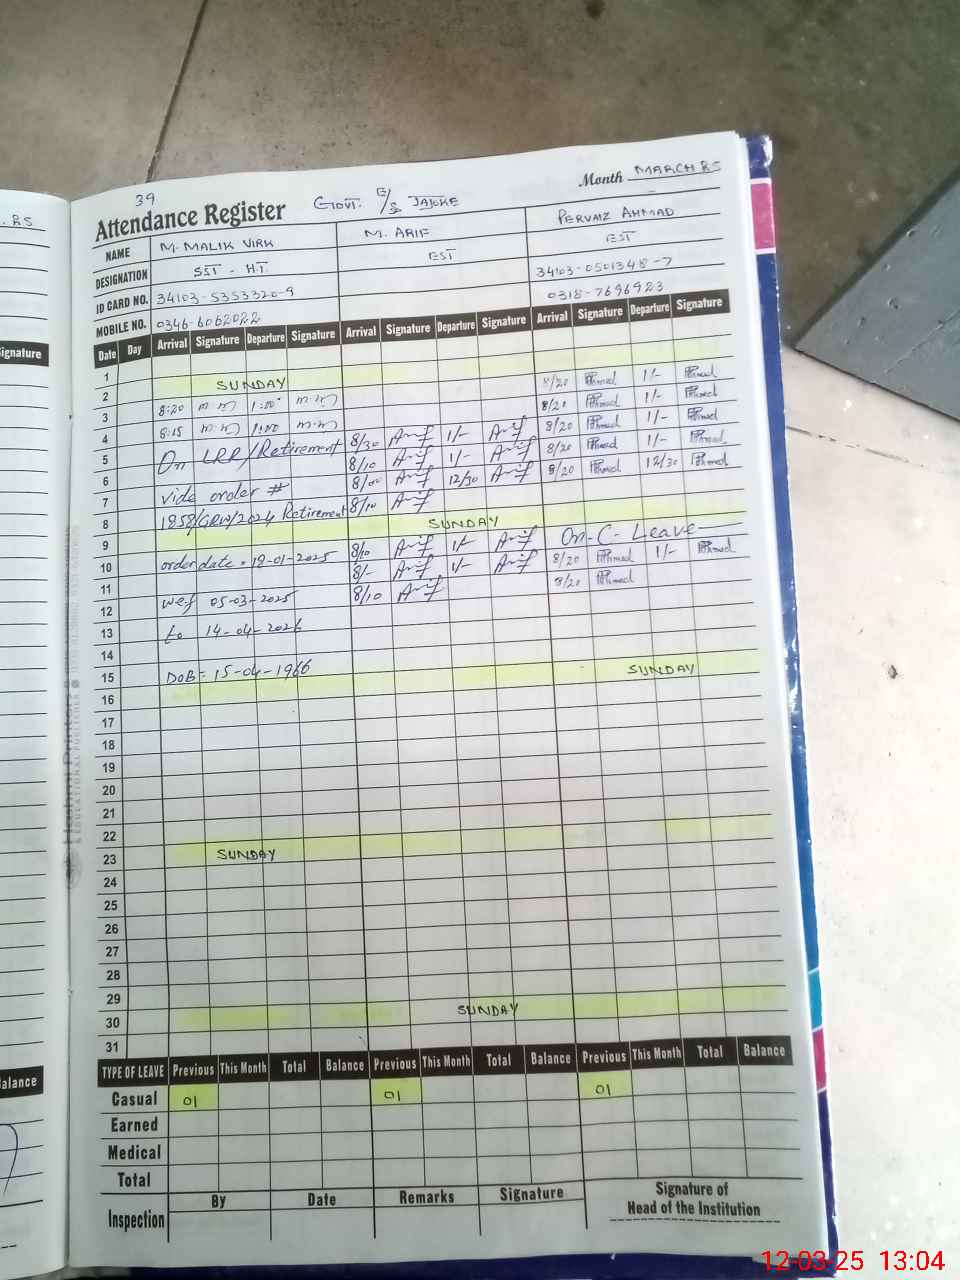 . R5
39
Month MARCH R5
Attendance Register GOVT. E/S JAJOKE
NAME M. MALIK VIRK M. ARIF PERVAIZ AHMAD
DESIGNATION SST - H.T. EST EST
ID CARD NO. 34103-5353320-9 34103-0501348-7
MOBILE NO. 0346-6062022 0318-7696923
Signature
Date Day Arrival Signature Departure Signature Arrival Signature Departure Signature Arrival Signature Departure Signature
1
2 SUNDAY
3 8:20 1:00 8/20 1/-
4 8:15 1:00 8/20 1/-
5 On LRP/Retirement 8/30 Arif 1/- Arif 8/20 1/-
6 8/10 Arif 1/- Arif 8/20 1/-
7 vide order # 8/00 Arif 12/30 Arif 8/20 12/30
8 1858/GRW/2024 Retirement 8/10 Arif
9 SUNDAY
10 order date = 18-01-2025 8/10 Arif 1/- Arif On-C-Leave
11 8/- Arif 1/- Arif 8/20 1/-
12 wef 05-03-2025 8/10 Arif 8/20
13 to 14-04-2026
14
15 DoB = 15-04-1966
16 SUNDAY
17
18
19
20
21
22
23 SUNDAY
24
25
26
27
28
29
30 SUNDAY
31
TYPE OF LEAVE Previous This Month Total Balance Previous This Month Total Balance Previous This Month Total Balance
Casual 01 01 01
Earned
Medical
Total
Inspection By Date Remarks Signature Signature of
Head of the Institution
Hashmi Printers
EDUCATIONAL PUBLISHER
12-03-25 13:04